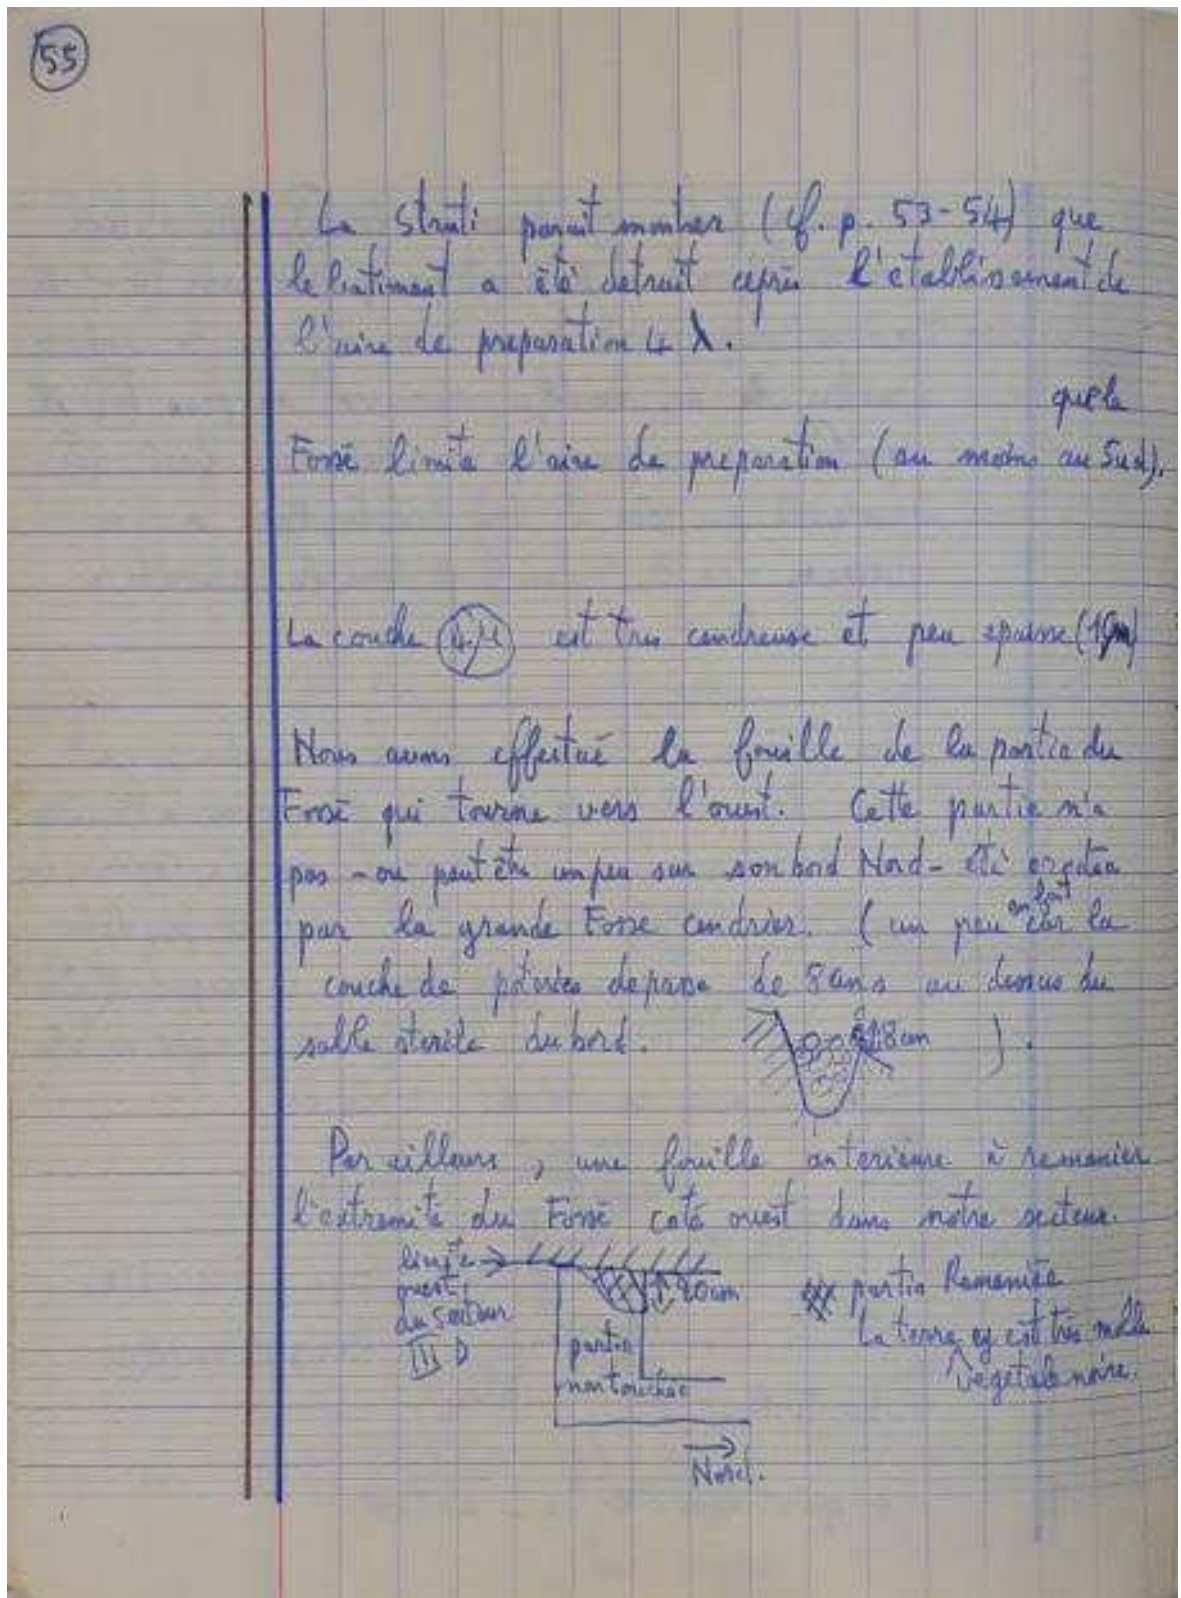 55
La strati parait montrer (cf. p. 53-54) que
le batiment a été detruit après l'etablissement de
l'aire de preparation 4 λ.
que le
Fossé limite l'aire de preparation (au moins au Sud).
La couche 4μ est tres cendreuse et peu epaisse
Nous avons effectué la fouille de la partie du
Fossé qui tourne vers l'ouest. Cette partie n'a
pas - ou peut être un peu sur son bord Nord - été
en haut
par la grande Fosse cendrier. (un peu car la
couche de poteries depasse de 8 cms au dessus du
sable sterile du bord. 8cm ).
Par ailleurs, une fouille anterieure à remanier
l'extremité du Fossé coté ouest dans notre secteur.
limite
ouest
du secteur
III D
20cm
partie
non touchée
partie Remaniée
La terre est très molle
vegetale noire.
Nord.